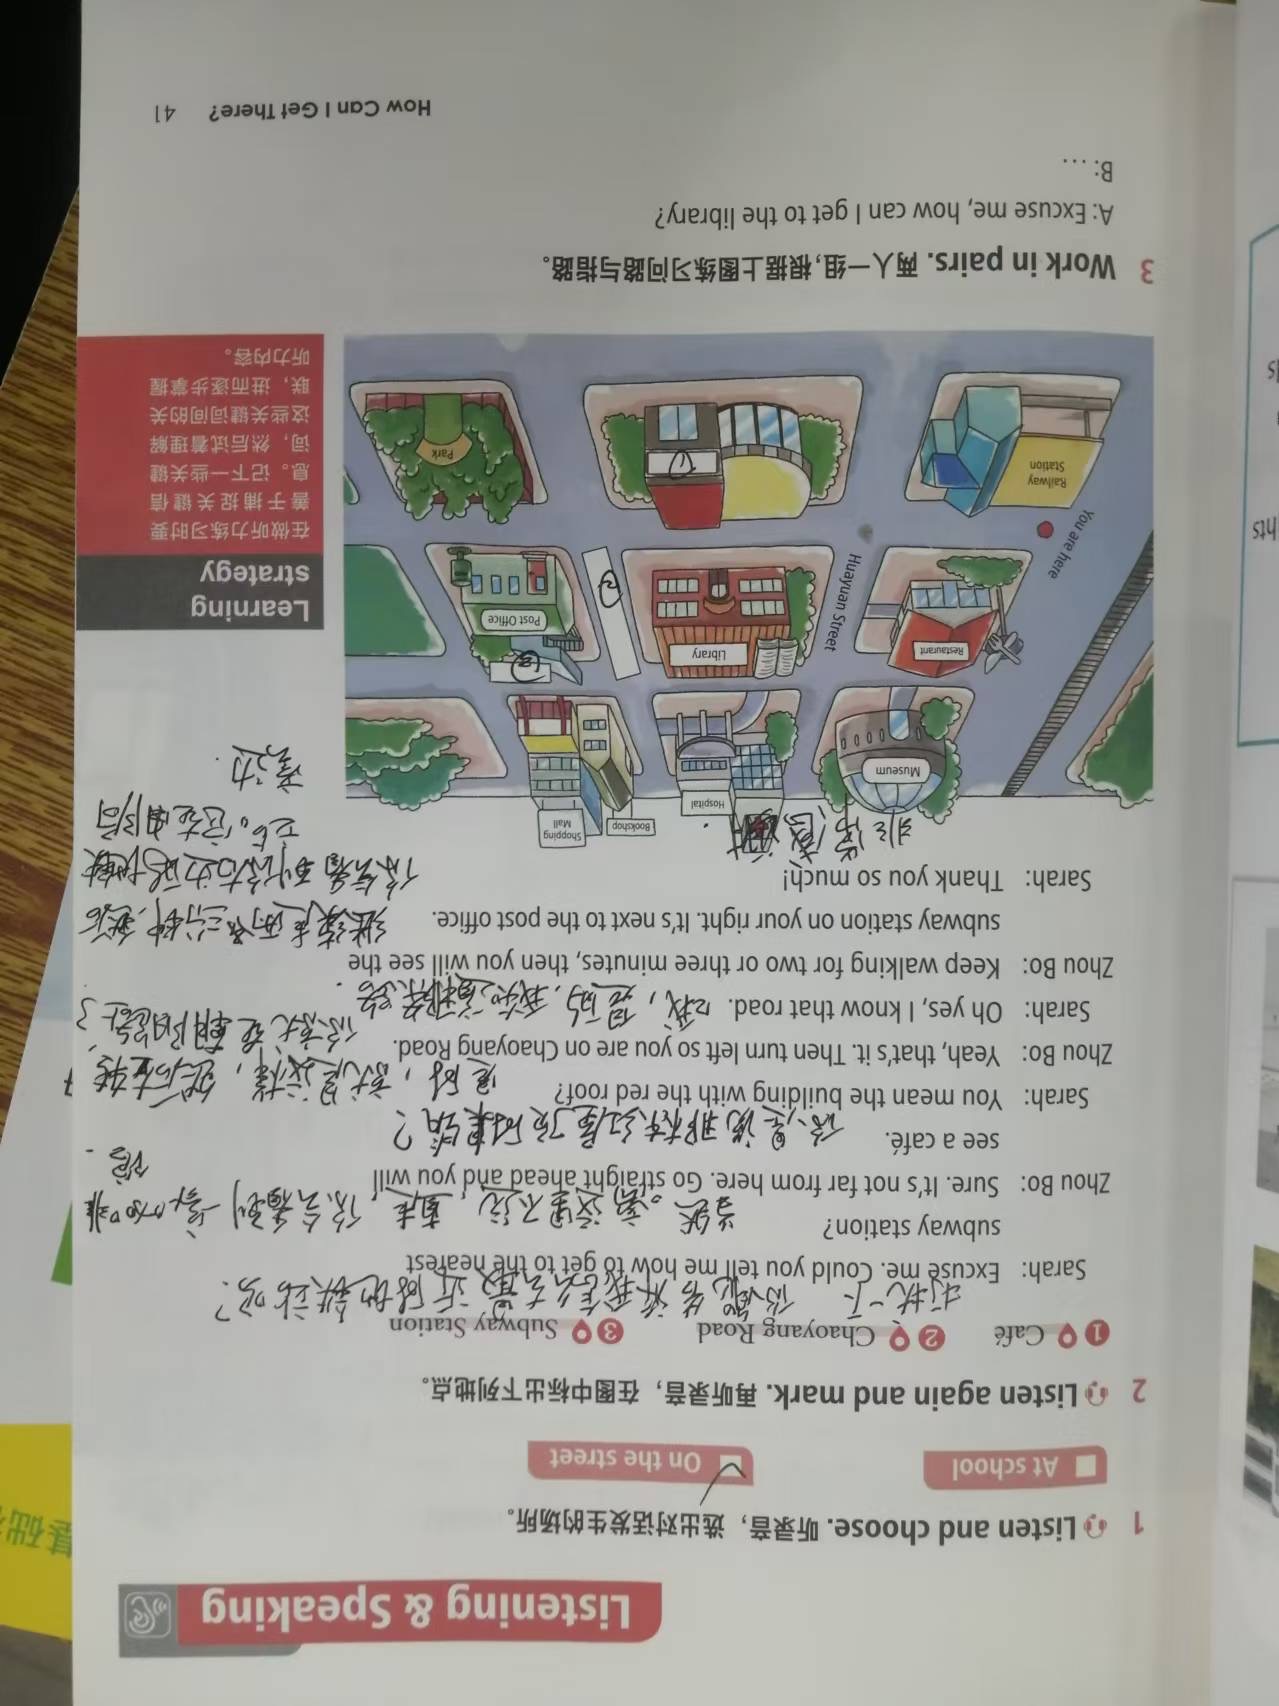 Listening & Speaking
1 Listen and choose. 听录音，选出对话发生的场所。
At school
On the street
2 Listen again and mark. 再听录音，在图中标出下列地点。
1 Café
2 Chaoyang Road
3 Subway Station
打扰一下 你能告诉我怎么去最近的地铁站吗？
Sarah: Excuse me. Could you tell me how to get to the nearest
subway station?
当然。离这里不远，直走，你会看到一家咖啡
馆.
Zhou Bo: Sure. It's not far from here. Go straight ahead and you will
see a café.
你是说那栋红屋顶的建筑？
Sarah: You mean the building with the red roof?
是的，就是这样，然后左转
Zhou Bo: Yeah, that's it. Then turn left so you are on Chaoyang Road.
你就在朝阳路上了
Sarah: Oh yes, I know that road.
哦，是的，我知道那条路.
Zhou Bo: Keep walking for two or three minutes, then you will see the
subway station on your right. It's next to the post office.
继续走两至三分钟，然后
你会看到你右边的地铁
站。它在邮局
旁边.
Sarah: Thank you so much!
非常感谢.
Museum
Hospital
Bookshop
Shopping
Mall
Restaurant
Library
3
Post Office
2
Huayuan Street
You are here
Railway
Station
1
Park
Learning
strategy
在做听力练习时要
善于捕捉关键信
息。记下一些关键
词，然后试着理解
这些关键词间的关
联，进而逐步掌握
听力内容。
3 Work in pairs. 两人一组，根据上图练习问路与指路。
A: Excuse me, how can I get to the library?
B: …
How Can I Get There? 41
hts
基础